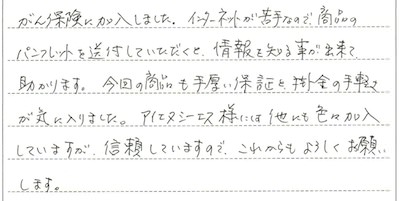 がん保険に加入しました。インターネットが苦手なので、商品の
パンフレットを送付していただくと、情報を知る事が出来て
助かります。今回の商品も手厚い保証と、掛金の手軽さ
が気に入りました。アイエヌシーエス様には他にも色々加入
していますが、信頼していますので、これからもよろしくお願い
します。